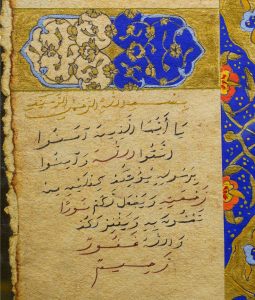 بسم الله الرحمن الرحيم
يَا أَيُّهَا الَّذِينَ آمَنُوا
اتَّقُوا اللَّهَ وَآمِنُوا
بِرَسُولِهِ يُؤْتِكُمْ كِفْلَيْنِ مِنْ
رَحْمَتِهِ وَيَجْعَلْ لَكُمْ نُورًا
تَمْشُونَ بِهِ وَيَغْفِرْ لَكُمْ
وَاللَّهُ غَفُورٌ
رَحِيمٌ